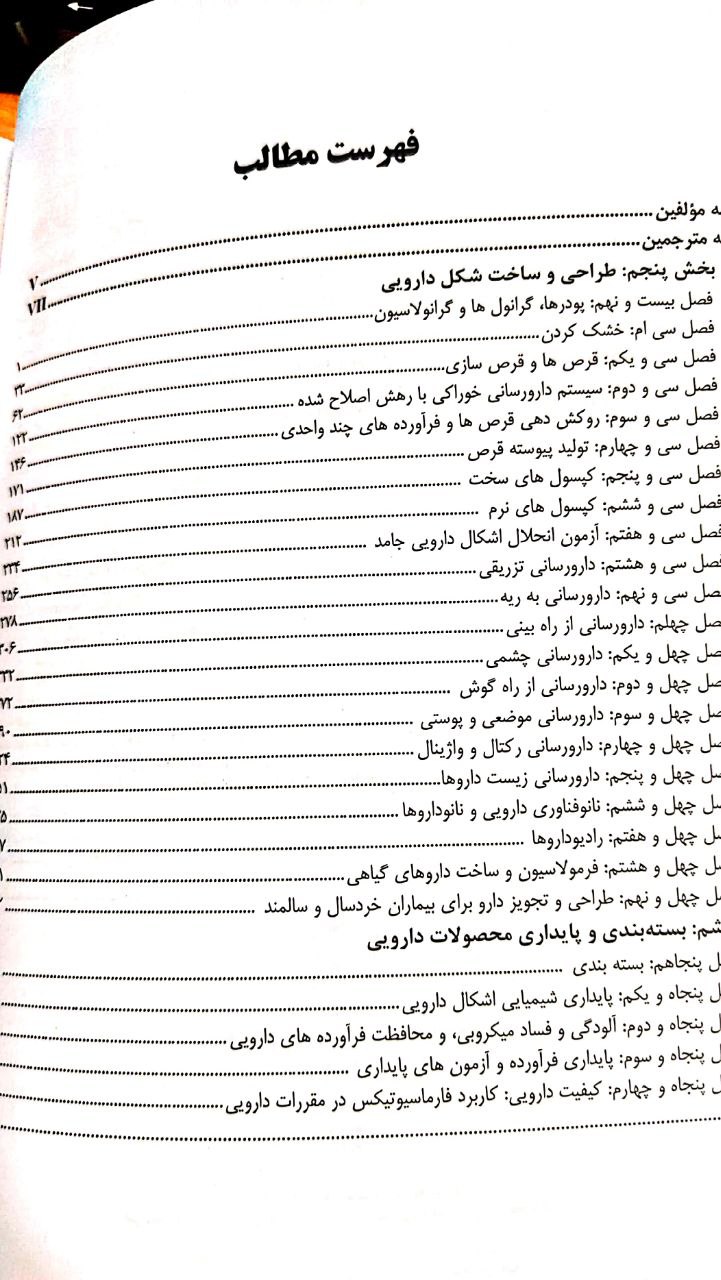 فهرست مطالب
مؤلفین V
مترجمین VII
بخش پنجم: طراحی و ساخت شکل دارویی
فصل بیست و نهم: پودرها، گرانول ها و گرانولاسیون ۱
فصل سی ام: خشک کردن ۳۳
فصل سی و یکم: قرص ها و قرص سازی ۶۲
فصل سی و دوم: سیستم دارورسانی خوراکی با رهش اصلاح شده ۱۲۲
فصل سی و سوم: روکش دهی قرص ها و فرآورده های چند واحدی ۱۴۶
فصل سی و چهارم: تولید پیوسته قرص ۱۷۱
فصل سی و پنجم: کپسول های سخت ۱۸۷
فصل سی و ششم: کپسول های نرم ۲۱۲
فصل سی و هفتم: آزمون انحلال اشکال دارویی جامد ۲۳۴
سی و هشتم: دارورسانی تزریقی ۲۵۶
سی و نهم: دارورسانی به ریه ۲۷۸
چهلم: دارورسانی از راه بینی
چهل و یکم: دارورسانی چشمی
چهل و دوم: دارورسانی از راه گوش
چهل و سوم: دارورسانی موضعی و پوستی
چهل و چهارم: دارورسانی رکتال و واژینال
چهل و پنجم: دارورسانی زیست داروها
چهل و ششم: نانوفناوری دارویی و نانوداروها
چهل و هفتم: رادیوداروها
چهل و هشتم: فرمولاسیون و ساخت داروهای گیاهی
چهل و نهم: طراحی و تجویز دارو برای بیماران خردسال و سالمند
بسته‌بندی و پایداری محصولات دارویی
پنجاهم: بسته بندی
پنجاه و یکم: پایداری شیمیایی اشکال دارویی
پنجاه و دوم: آلودگی و فساد میکروبی، و محافظت فرآورده های دارویی
پنجاه و سوم: پایداری فرآورده و آزمون های پایداری
پنجاه و چهارم: کیفیت دارویی: کاربرد فارماسیوتیکس در مقررات دارویی